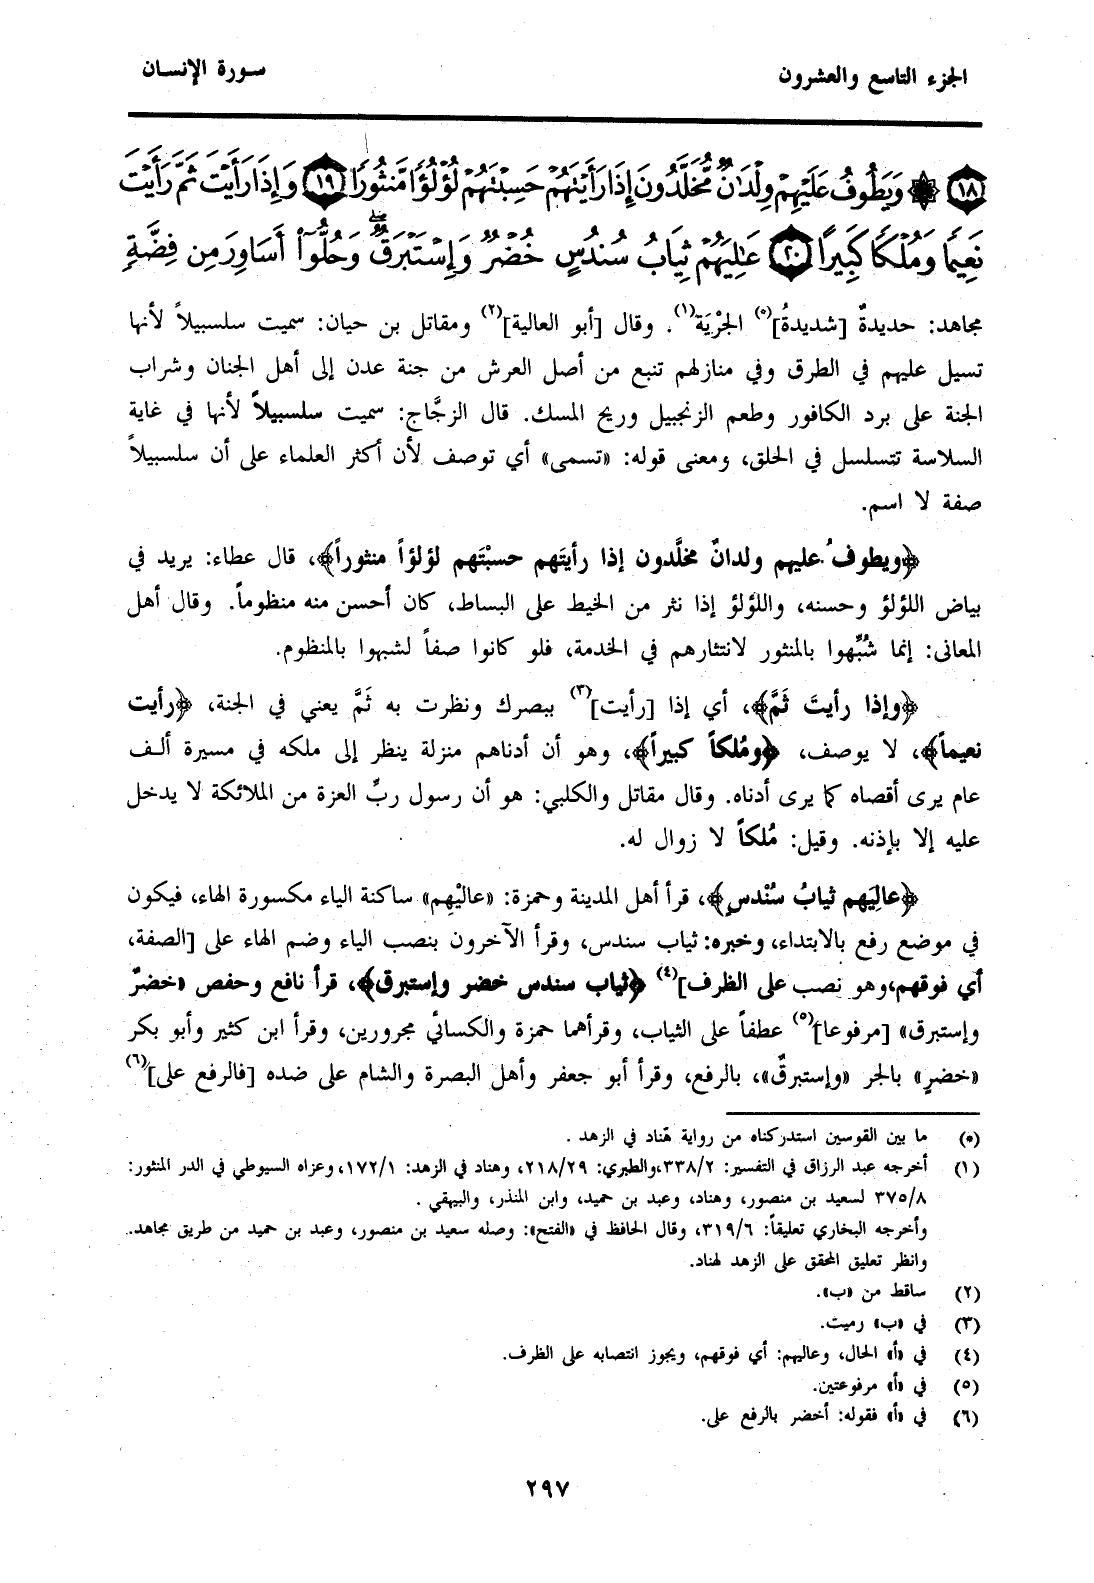 الجزء التاسع والعشرون
سورة الإنسان
۝١٨ ۞ وَيَطُوفُ عَلَيْهِمْ وِلْدَٰنٌ مُّخَلَّدُونَ إِذَا رَأَيْتَهُمْ حَسِبْتَهُمْ لُؤْلُؤًا مَّنثُورًا ۝١٩ وَإِذَا رَأَيْتَ ثَمَّ رَأَيْتَ
نَعِيمًا وَمُلْكًا كَبِيرًا ۝٢٠ عَٰلِيَهُمْ ثِيَابُ سُندُسٍ خُضْرٌ وَإِسْتَبْرَقٌ ۖ وَحُلُّوٓا۟ أَسَاوِرَ مِن فِضَّةٍ
مجاهد: حديدةٌ [شديدةُ](*) الجرْيَة(١). وقال [أبو العالية](٢) ومقاتل بن حيان: سميت سلسبيلاً لأنها
تسيل عليهم في الطرق وفي منازلهم تنبع من أصل العرش من جنة عدن إلى أهل الجنان وشراب
الجنة على برد الكافور وطعم الزنجبيل وريح المسك. قال الزجَّاج: سميت سلسبيلاً لأنها في غاية
السلاسة تتسلسل في الحلق، ومعنى قوله: «تسمى» أي توصف لأن أكثر العلماء على أن سلسبيلاً
صفة لا اسم.
﴿ويطوفُ عليهم ولدانٌ مخلَّدون إذا رأيتَهم حسبْتَهم لؤلؤاً منثوراً﴾، قال عطاء: يريد في
بياض اللؤلؤ وحسنه، واللؤلؤ إذا نثر من الخيط على البساط، كان أحسن منه منظوماً. وقال أهل
المعانى: إنما شُبِّهوا بالمنثور لانتثارهم في الخدمة، فلو كانوا صفاً لشبهوا بالمنظوم.
﴿وإذا رأيتَ ثَمَّ﴾، أي إذا [رأيت](٣) ببصرك ونظرت به ثَمَّ يعني في الجنة، ﴿رأيت
نعيماً﴾، لا يوصف، ﴿ومُلكاً كبيراً﴾، وهو أن أدناهم منزلة ينظر إلى ملكه في مسيرة ألف
عام يرى أقصاه كما يرى أدناه. وقال مقاتل والكلبي: هو أن رسول ربِّ العزة من الملائكة لا يدخل
عليه إلا بإذنه. وقيل: مُلكاً لا زوال له.
﴿عالِيَهم ثيابُ سُنْدسٍ﴾، قرأ أهل المدينة وحمزة: «عاليْهِم» ساكنة الياء مكسورة الهاء، فيكون
في موضع رفع بالابتداء، وخبره: ثياب سندس، وقرأ الآخرون بنصب الياء وضم الهاء على [الصفة،
أي فوقهم،وهو نصب على الظرف](٤) ﴿ثياب سندس خضر وإستبرق﴾، قرأ نافع وحفص «خضرٌ
وإستبرق» [مرفوعا](٥) عطفاً على الثياب، وقرأهما حمزة والكسائي مجرورين، وقرأ ابن كثير وأبو بكر
«خضرٍ» بالجر «وإستبرقٌ»، بالرفع، وقرأ أبو جعفر وأهل البصرة والشام على ضده [فالرفع على](٦)
(*) ما بين القوسين استدركناه من رواية هناد في الزهد .
(١) أخرجه عبد الرزاق في التفسير: ٣٣٨/٢،والطبري: ٢١٨/٢٩، وهناد في الزهد: ١٧٢/١، وعزاه السيوطي في الدر المنثور:
٣٧٥/٨ لسعيد بن منصور، وهناد، وعبد بن حميد، وابن المنذر، والبيهقي .
وأخرجه البخاري تعليقاً: ٣١٩/٦، وقال الحافظ في «الفتح»: وصله سعيد بن منصور، وعبد بن حميد من طريق مجاهد.
وانظر تعليق المحقق على الزهد لهناد.
(٢) ساقط من «ب».
(٣) في «ب» رميت.
(٤) في «أ» الحال، وعاليهم: أي فوقهم، ويجوز انتصابه على الظرف.
(٥) في «أ» مرفوعتين.
(٦) في «أ» فقوله: أخضر بالرفع على.
٢٩٧